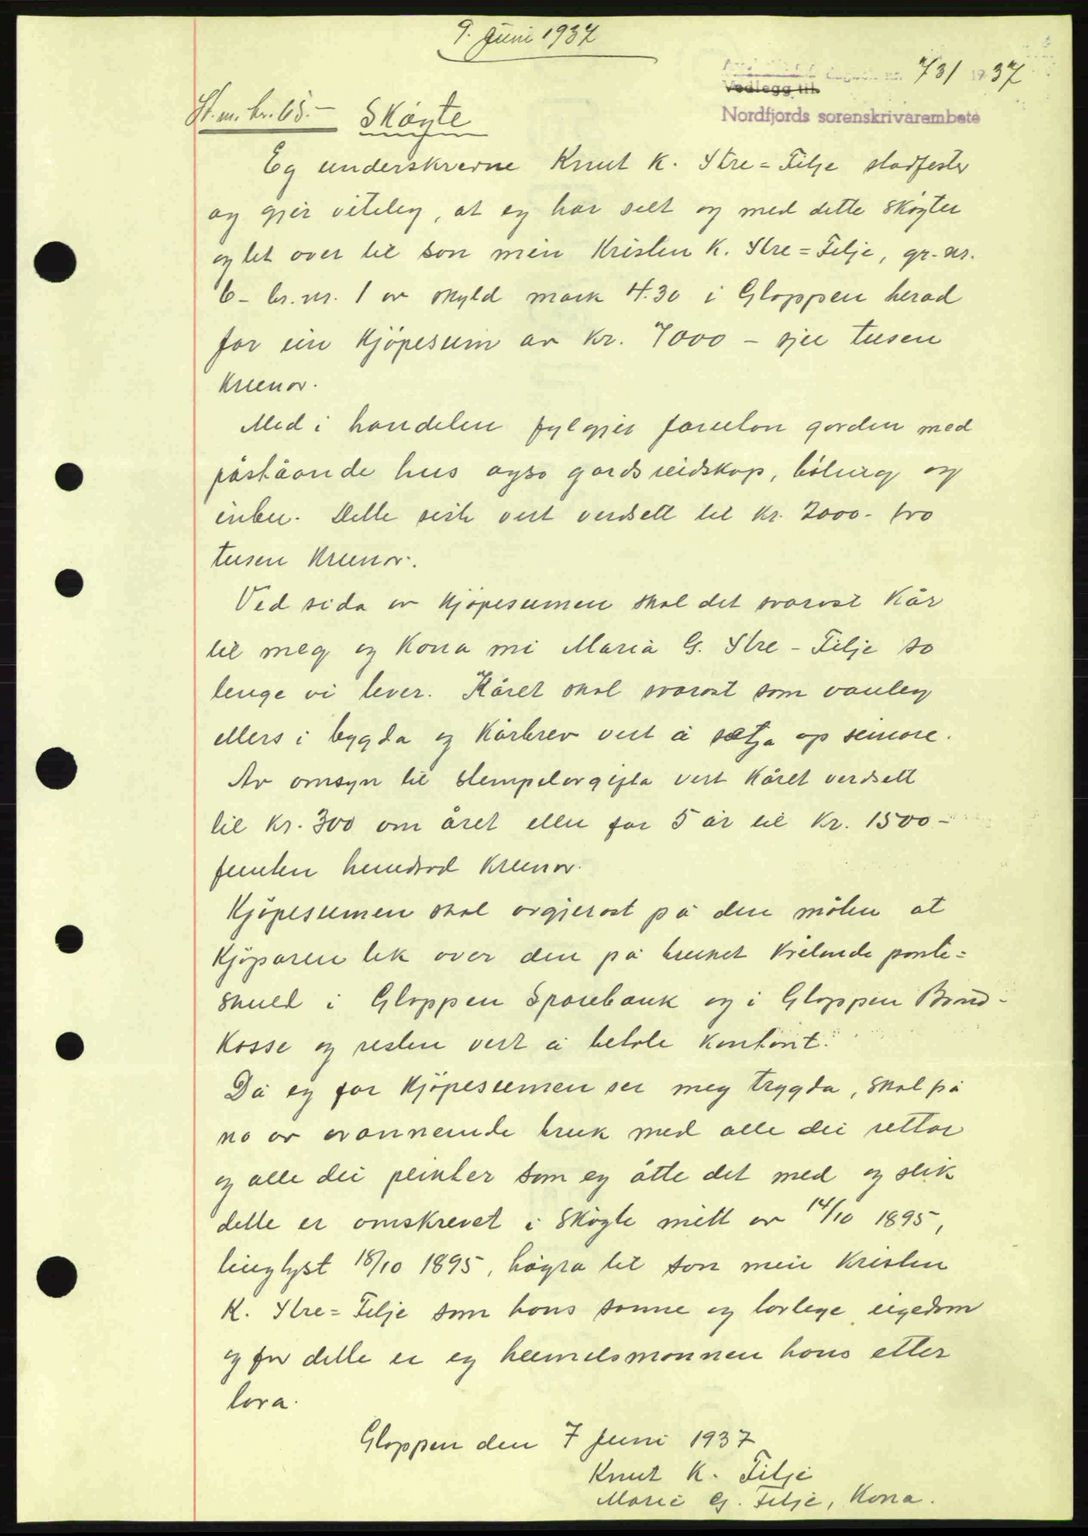 9. Juni 1937
dagbok nr. 731 1937
Vedlegg til
Nordfjords sorenskrivarembete
St.m. kr. 65.-
Skøyte
Eg underskrivne Knut K. Ytre=Tilje stadfester
og gjer viteleg, at eg har selt og med dette skøyter
og let over til son min Kristen K. Ytre=Tilje, gr.nr.
6 - br.nr. 1 av skyld mark 4.30 i Gloppen herad
for ein Kjøpesum av Kr. 7000 - sju tusen
Krunor.
Med i handelen fylgjer forutan garden med
påståande hus også gardsreidskap, bøling og
inbu. Dette siste vert verdsett til Kr. 2000.- tvo
tusen Krunor.
Ved sida av Kjøpesumen skal det svarast Kår
til meg og Kona mi Maria G. Ytre-Tilje so
lenge vi lever. Kåret skal svarast som vanleg
ellers i bygda og Kårbrev vert å sætja op seinare.
Av omsyn til stempelavgifta vert Kåret verdsett
til Kr. 300 om året eller for 5 år til Kr. 1500 -
femten hundrad Krunor.
Kjøpesumen skal avgjerast på den måten at
Kjøparen tek over den på bruket kvilande pante=
skuld i Gloppen Sparebank og i Gloppen Brand-
Kasse og resten vert å betale kontant.
Då eg for Kjøpesumen ser meg trygda, skal frå
no av ovannemnde bruk med alle dei rettar
og alle dei plikter som eg åtte det med og slik
dette er omskrevet i Skøyte mitt av 14/10 1895,
tinglyst 18/10 1895, høyra til son min Kristen
K. Ytre=Tilje som hans sanne og lovlege eigedom
og for dette er eg heimelsmannen hans etter
lova.
Gloppen den 7 Juni 1937
Knut K. Tilje
Marie G. Tilje, Kona.